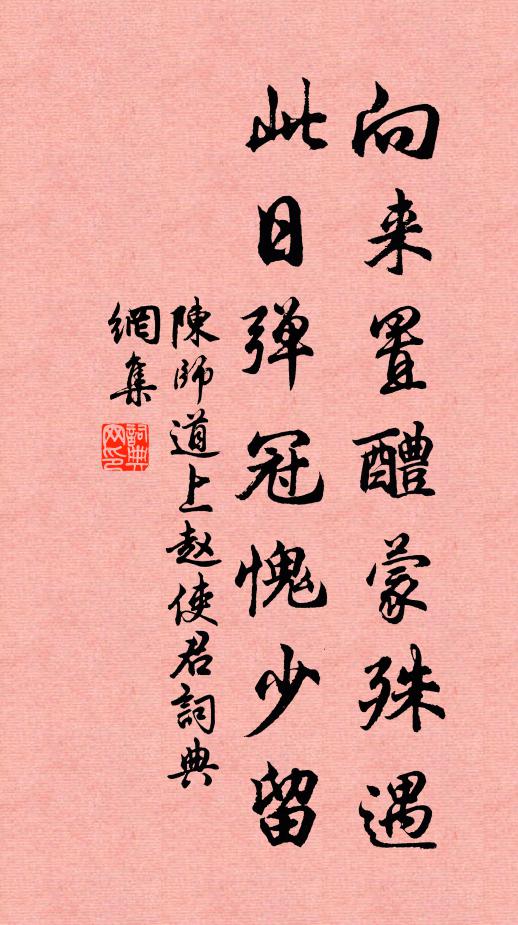 向来置醴蒙殊遇
此日弹冠愧少留
陳師道上赵使君詞典
網集
詞典網印